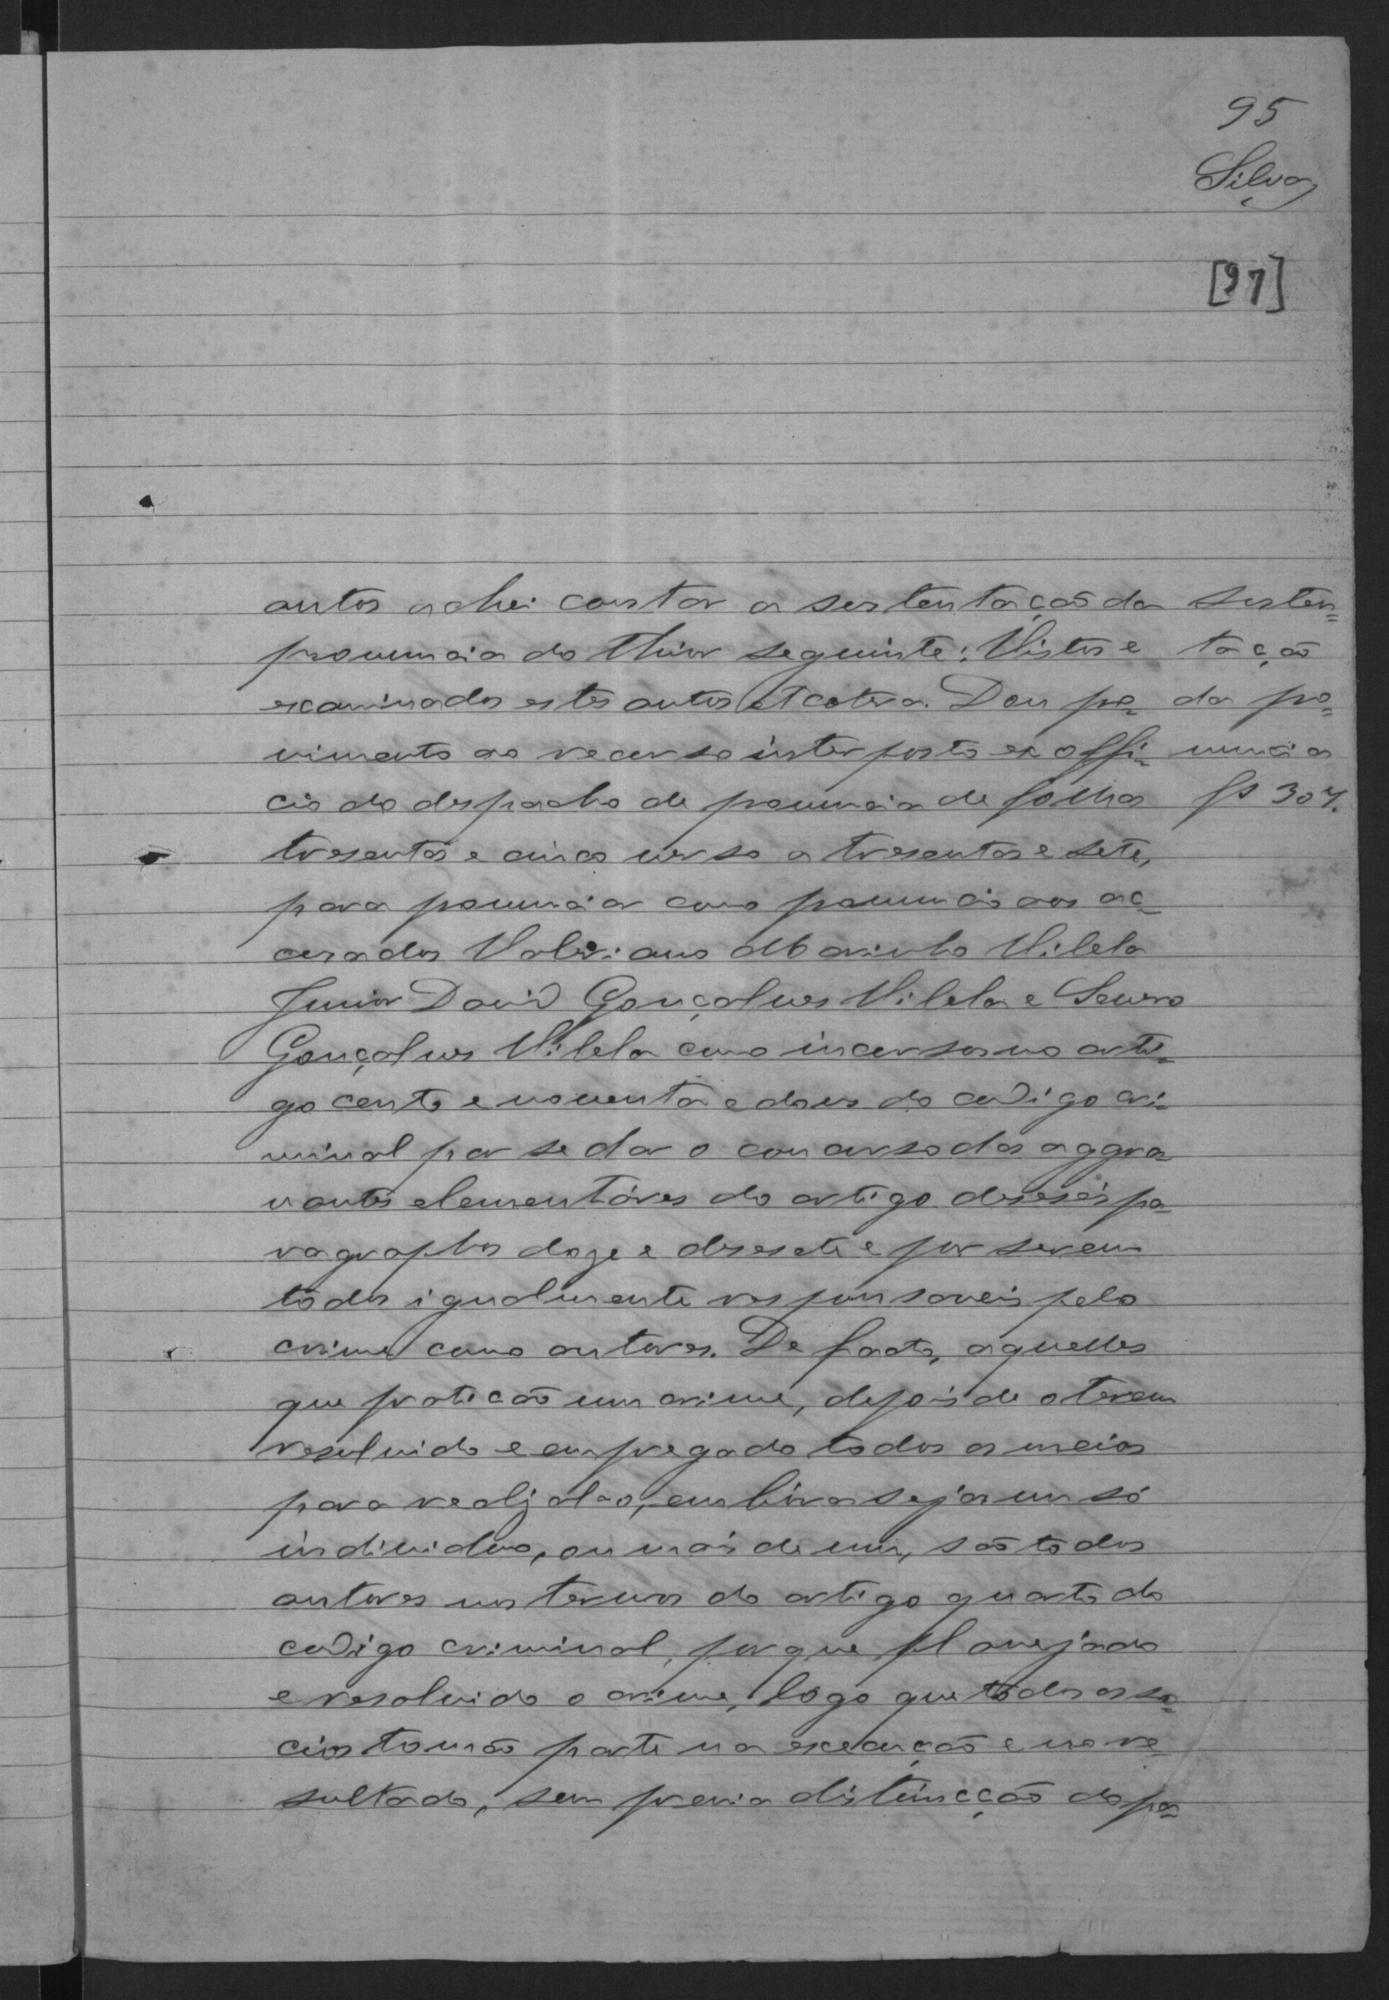 95
Silva
[97]
autos achei constar a sustentação da
pronuncia do theor seguinte: Vistos e
examinados estes autos etcetera. Dou pro=
vimento ao recurso interposto ex offi=
cio do despacho de pronuncia de folhas
tresentos e cinco verso a tresentos e sete,
para pronunciar como pronuncio aos ac=
cusados Valeriano Marinho Vilela
Junior David Gonçalves Vilela e Severo
Gonçalves Vilela como incursos no arti=
go cento e noventa e dous do codigo cri=
minal por se dar o concurso das aggra=
vantes elementáres do artigo deseseis pa=
ragraphos doze e desesete e por serem
todos igualmente responsaveis pelo
crime como autores. De facto, aquelles
que praticão um crime, depois de o terem
resolvido e empregado todos os meios
para realizal-o, embóra seja um só
individuo, ou mais de um, são todos
autores nos termos do artigo quarto do
codigo criminal, porque planejado
e resolvido o crime, logo que todos os so=
cios tomão parte na execução e no re=
sultado, sem previa distincção do pa=
Susten=
tação
da pro=
nuncia
fs 307.